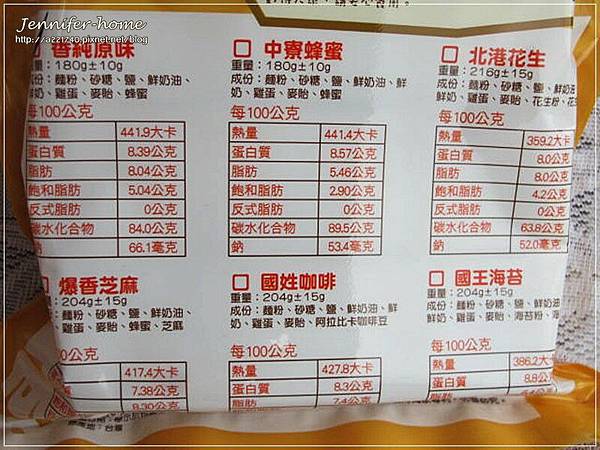 Jennifer-home
http://a221740.pixnet.net/blog
香純原味
重量：180g±10g
成份：麵粉、砂糖、鹽、鮮奶油、
鮮奶、雞蛋、麥胎、蜂蜜
每100公克
熱量 441.9大卡
蛋白質 8.39公克
脂肪 8.04公克
飽和脂肪 5.04公克
反式脂肪 0公克
碳水化合物 84.0公克
鈉 66.1毫克
□ 中寮蜂蜜
重量：180g±10g
成份：麵粉、砂糖、鹽、鮮奶油、鮮
奶、雞蛋、麥胎、蜂蜜
每100公克
熱量 441.4大卡
蛋白質 8.57公克
脂肪 5.46公克
飽和脂肪 2.90公克
反式脂肪 0公克
碳水化合物 89.5公克
鈉 53.4毫克
□ 北港花生
重量：216g±15g
成份：麵粉、砂糖、鹽、鮮奶油、
鮮奶、雞蛋、麥胎、花生粉、花
每100公克
熱量 359.2大卡
蛋白質 8.0公克
脂肪 8.0公克
飽和脂肪 4.2公克
反式脂肪 0公克
碳水化合物 63.8公克
鈉 52.0毫克
爆香芝麻
重量：204g±15g
成份：麵粉、砂糖、鹽、鮮奶油、
、雞蛋、麥胎、蜂蜜、芝麻
00公克
417.4大卡
7.38公克
8.30公克
□ 國姓咖啡
重量：204g±15g
成份：麵粉、砂糖、鹽、鮮奶油、鮮
奶、雞蛋、麥胎、阿拉比卡咖啡豆
每100公克
熱量 427.8大卡
蛋白質 8.3公克
脂肪 7.4公克
□ 國王海苔
重量：204g±15g
成份：麵粉、砂糖、鹽、鮮奶油、
鮮奶、雞蛋、麥胎、海苔粉、海
每100公克
熱量 386.2大卡
蛋白質 8.8公
脂肪